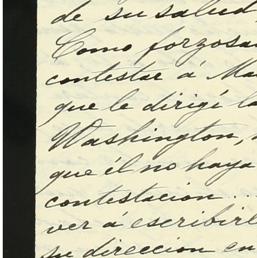 de su salud
Como forzosa
contestar á Ma
que le dirigí la
Washington,
que él no haya
contestacion...
ver á escribirl
su direccion en